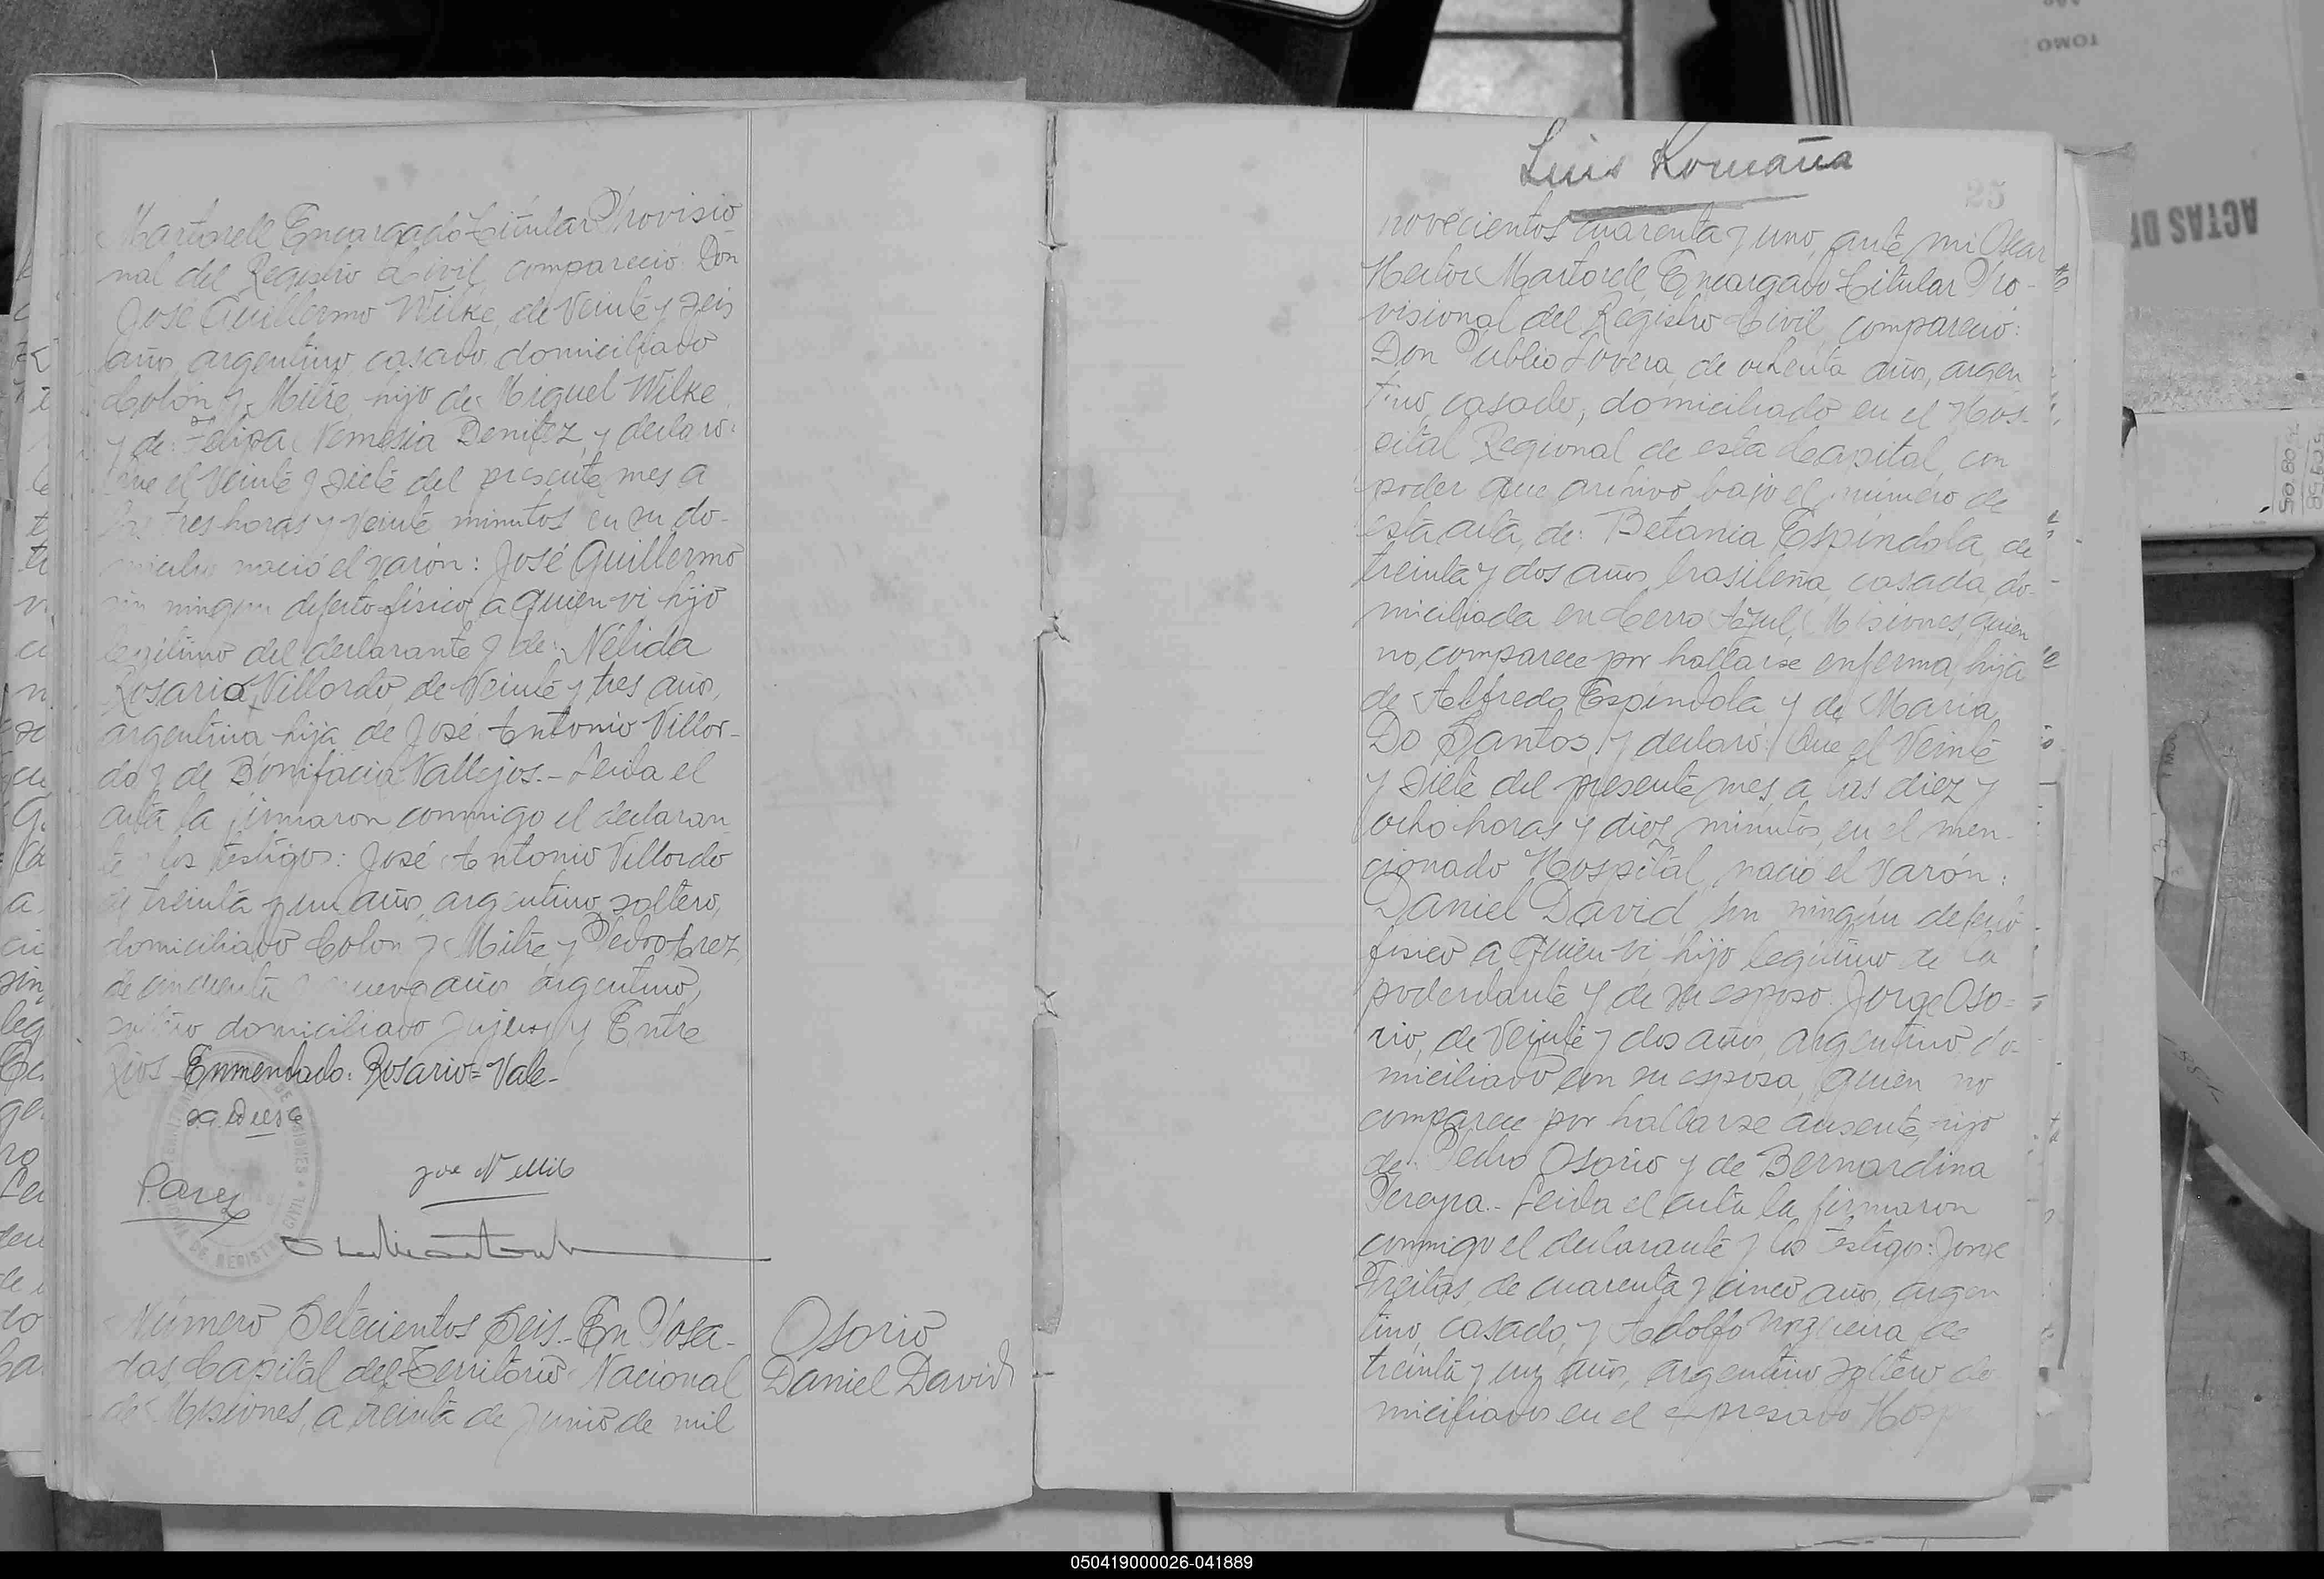 Martorell Encargado Titular Provisio
nal del Registro Civil, compareció: Don
José Guillermo Wilke, de Veinte y Seis
años, argentino, casado, domiciliado
Colón y Mitre, hijo de Miguel Wilke,
y de: Felipa Nemesia Benitez, y declaró:
Que el Veinte y Siete del presente mes a
las tres horas y Veinte minutos en su do-
micilio nació el varón: José Guillermo
sin ningun defecto físico, a quien vi hijo
legítimo del declarante y de: Nélida
Rosario Villordo, de Veinte y tres años,
argentina, hija de José Antonio Villor-
do y de Bonifacia Vallejos.- Leida el
acta la firmaron conmigo el declaran
te y los testigos: José Antonio Villordo
de treinta y un años, argentino, soltero,
domiciliado Colon y Mitre y Pedro
de cincuenta y nueve años argentino,
soltero domiciliado Jujuy y Entre
Rios - Enmendado: Rosario= Vale-
Número Setecientos Seis.- En Posa-
das, Capital del Territorio Nacional
de Misiones, a treinta de Junio de mil
Osorio
Daniel David
Luis Romaña
25
novecientos cuarenta y uno, ante mi Oscar
Hector Martorell, Encargado Titular Pro-
visional del Registro Civil, compareció:
Don Publio Lovera, de ochenta años, argen
tino, casado, domiciliado en el Hos-
pital Regional de esta Capital, con
poder que archivo bajo el número de
esta acta, de: Betania Espíndola, de
treinta y dos años brasileña, casada, do-
miciliada en Cerro Azul, Misiones, quien
no comparece por hallarse enferma, hija
de Alfredo Espíndola y de María
Do Santos, y declaró: Que el Veinte
y Siete del presente mes, a las diez y
ocho horas y diez minutos, en el men-
cionado Hospital, nació el varón:
Daniel David, sin ningún defecto
físico a quien vi, hijo legítimo de la
poderdante y de su esposo Jorge Oso=
rio, de Veinte y dos años, argentino, do-
miciliado con su esposa, quien no
comparece por hallarse ausente, hijo
de: Pedro Osorio y de Bernardina
Pereyra.- Leida el acta la firmaron
conmigo el declarante y los testigos: Jorge
Freitas, de cuarenta y cinco años, argen
tino, casado, y Adolfo Nogueira, de
treinta y un años, argentino soltero, do
miciliados en el expresado Hosp
TOMO
ACTAS DE
050419000026-041889